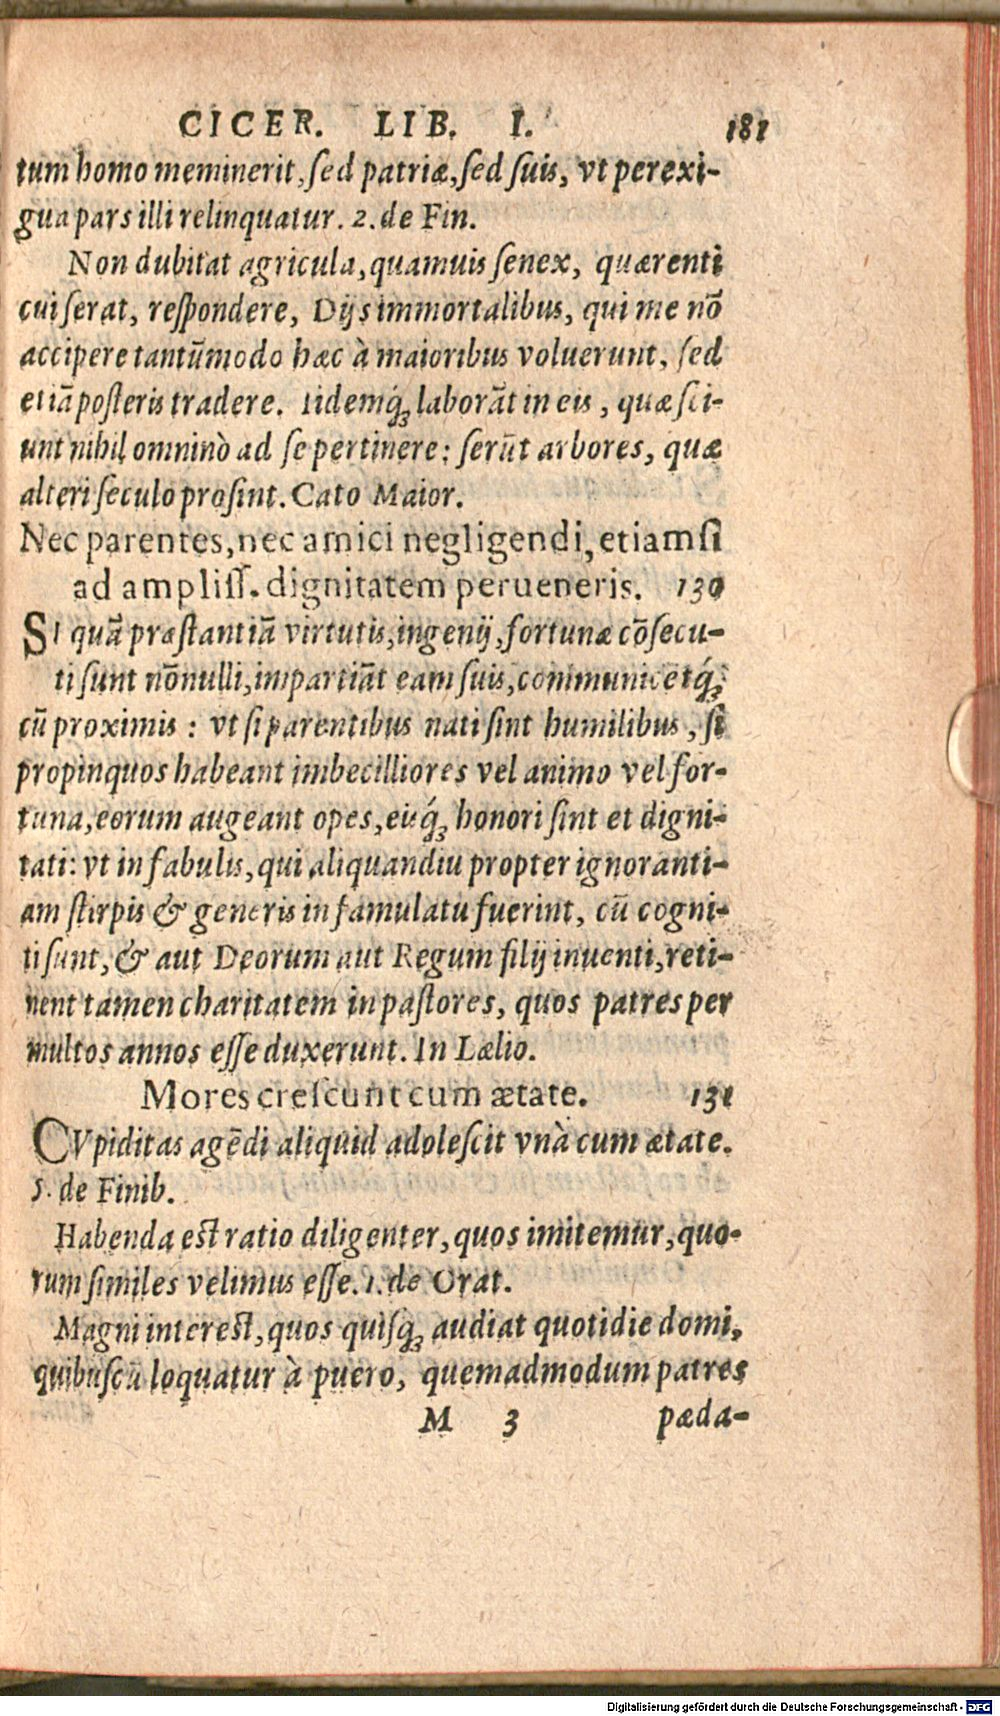 CICER. LIB. I. 181
tum homo meminerit, ſed patriæ, ſed ſuis, vt perexi-
gua pars illi relinquatur. 2. de Fin.
Non dubitat agricula, quamuis ſenex, quærenti
cui ſerat, reſpondere, Dijs immortalibus, qui me nõ
accipere tantũmodo hæc à maioribus voluerunt, ſed
etiã poſteris tradere. Iidemq́ꝫ laborãt in eis, quæ ſci-
unt nihil omninò ad ſe pertinere: ſerũt arbores, quæ
alteri ſeculo proſint. Cato Maior.
Nec parentes, nec amici negligendi, etiamſi
ad ampliſſ. dignitatem perueneris. 130
SI quã præſtantiã virtutis, ingenij, fortunæ cõſecu-
ti ſunt nõnulli, impartiãt eam ſuis, communicẽtq́ꝫ
cũ proximis: vt ſi parentibus nati ſint humilibus, ſi
propinquos habeant imbecilliores vel animo vel for-
tuna, eorum augeant opes, eisq́ꝫ honori ſint et digni-
tati: vt in fabulis, qui aliquandiu propter ignoranti-
am ſtirpis & generis in famulatu fuerint, cũ cogni-
ti ſunt, & aut Deorum aut Regum filij inuenti, reti-
nent tamen charitatem in paſtores, quos patres per
multos annos eſſe duxerunt. In Lælio.
Mores creſcunt cum ætate. 131
CVpiditas agẽdi aliquid adoleſcit vnà cum ætate.
5. de Finib.
Habenda eſt ratio diligenter, quos imitemur, quo-
rum ſimiles velimus eſſe. 1. de Orat.
Magni intereſt, quos quiſqꝫ audiat quotidie domi,
quibuſcũ loquatur à puero, quemadmodum patres
M 3 pæda-
Digitalisierung gefördert durch die Deutsche Forschungsgemeinschaft - DFG